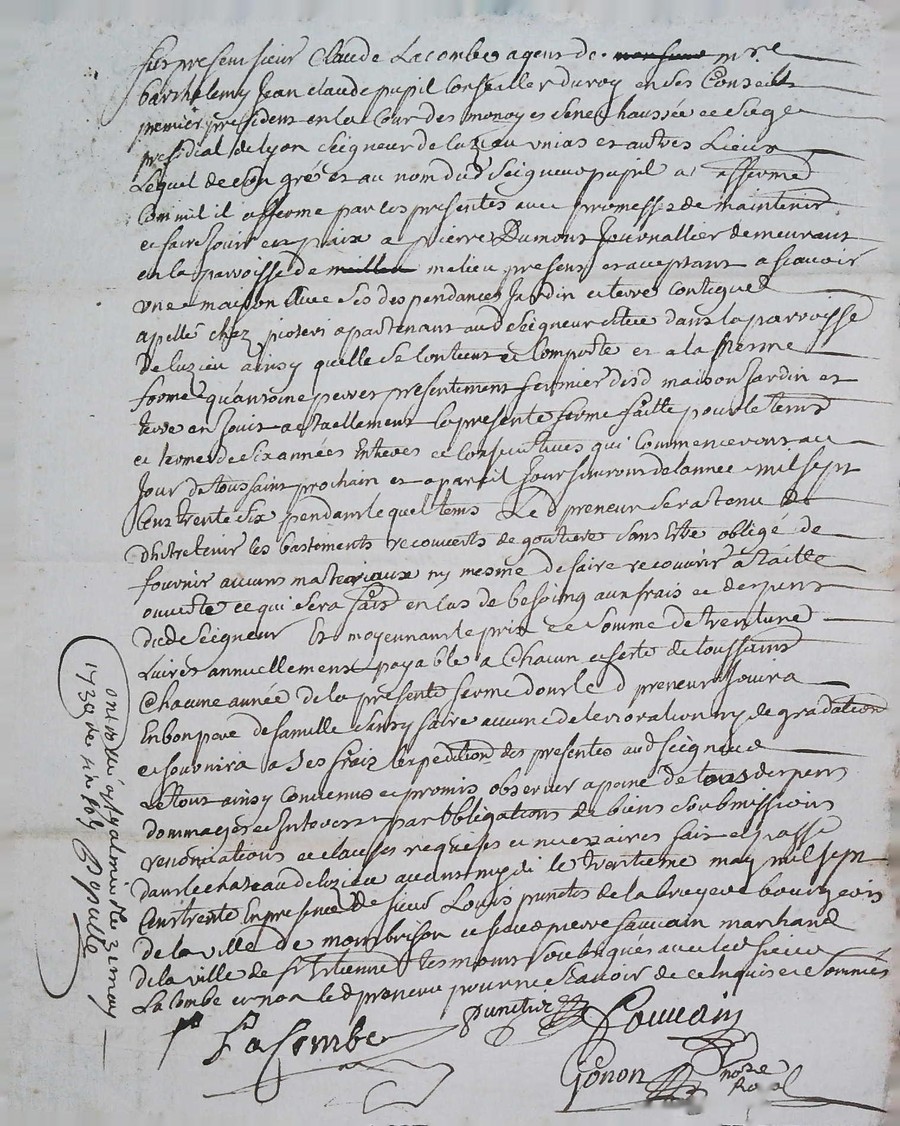 fut present sieur Claude Lacombe agent de mre
barthelemy Jean claude pupil Conseiller du roy en ses Conseils
premier president en la Cour des monoyes senechaussée et siege
presidial de lyon seigneur de luzieu unias et autres Lieux
Lequel de son gré et au nom dud seigneur pupil a affermé
Comme il afferme par les presentes avec promesses de maintenir
et faire Jouir en paix a pierre Dumont Journallier demeurant
en la parroisse de melieu present et acceptant a scavoir
une maison avec ses dependances Jardin et terre contigues
apellé chez apartenant aud seigneur situé dans la parroisse
de luzieu ainsy quelle se contient et Comporte et a la mesme
forme qu'antoine presentement fermier desd maison Jardin et
terre en Jouit actuellement la presente ferme faitte pour le tems
et terme de six années Entieres et consecutives qui Commenceront au
Jour de toussaint prochain et a pareil Jour finiront de lannée mil sept
Cens trente six pendant lequel tems Le d preneur sera tenu de
d'hentretenir les bastiments recouverts de goutiere sans Etre obligé de
fournir aucuns materiaux ny mesme de faire recouvrir a taille
ouverte ce qui sera fait en cas de besoing aux frais et despens
dud seigneur Et moyennant le prix et somme de trente une
Livres annuellement payable a Chacun feste de toussaint
Chacune année de la presente ferme dont le d preneur Jouira
En bon pere de famille sans y faire aucune deterioration ny degradation
et fournira a ses frais lexpedition des presentes aud seigneur
Le tout ainsy Convenus et promis observer a peine de tous despens
dommages et Interets par obligations de biens soubmissions
renonciations et clauses requises et necessaires fait et passé
dans le chateau de luzieu avant midi le trentieme may mil sept
Cens trente En presence de sieur Louis punctis de la bruyere bourgeois
de la ville de montbrison et sieur pierre sauvain marchand
de la ville de st Etienne tesmoins soubsignes avec led sieur
La Combe et non le d preneur pour ne scavoir de ce enquis et sommés
LaCombe
punctis
Sauvain
Gonon
nore
Royal
1730